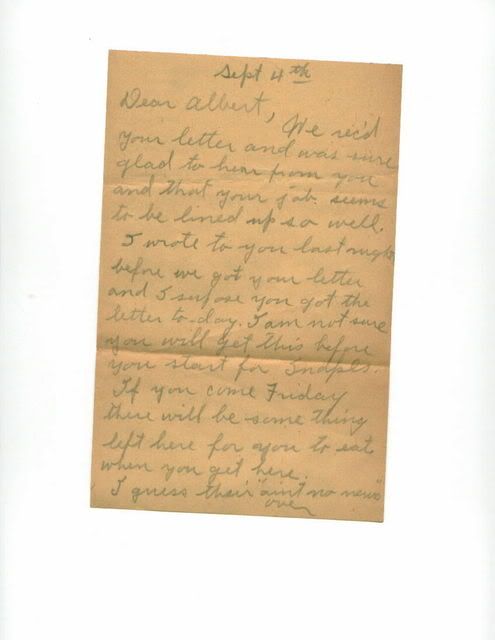 Sept 4th
Dear Albert, We rec'd
your letter and was sure
glad to hear from you
and that your job seems
to be lined up so well.
I wrote to you last night
before we got your letter
and I supose you got the
letter to-day. I am not sure
you will get this before
you start for Indpls.
If you come Friday
there will be some thing
left here for you to eat
when you get here.
I guess their "aint no news"
over